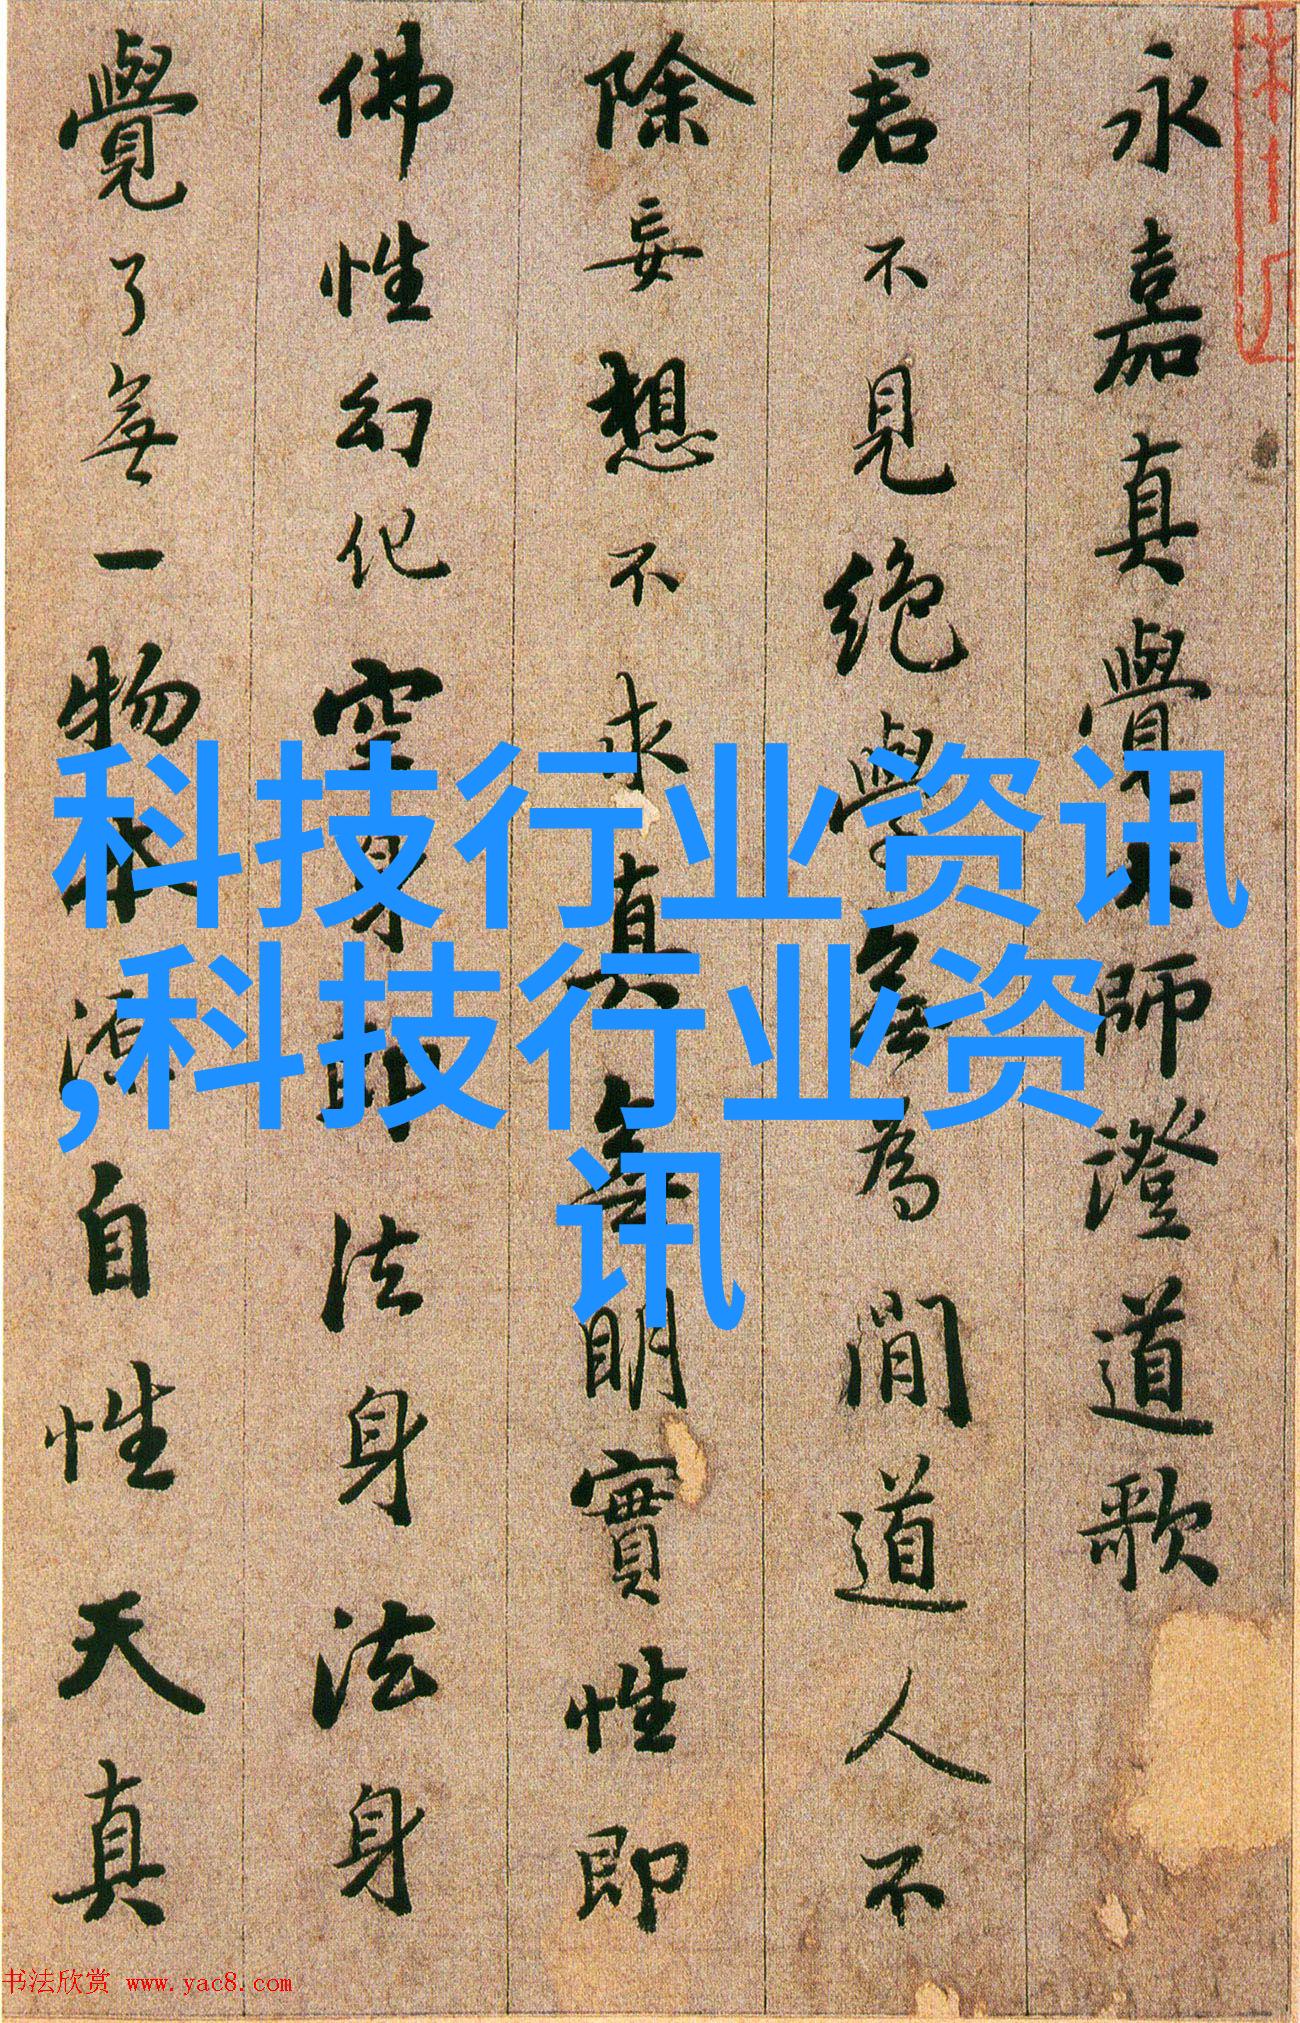 永嘉真覺大師證道歌
君不見絕學無為閒道人不
除妄想不求真無明實性即
佛性幻化空身即法身法身
覺了無一物本源自性天真
科技行业资讯
,科技行业资
讯
书法欣赏 www.yac8.com